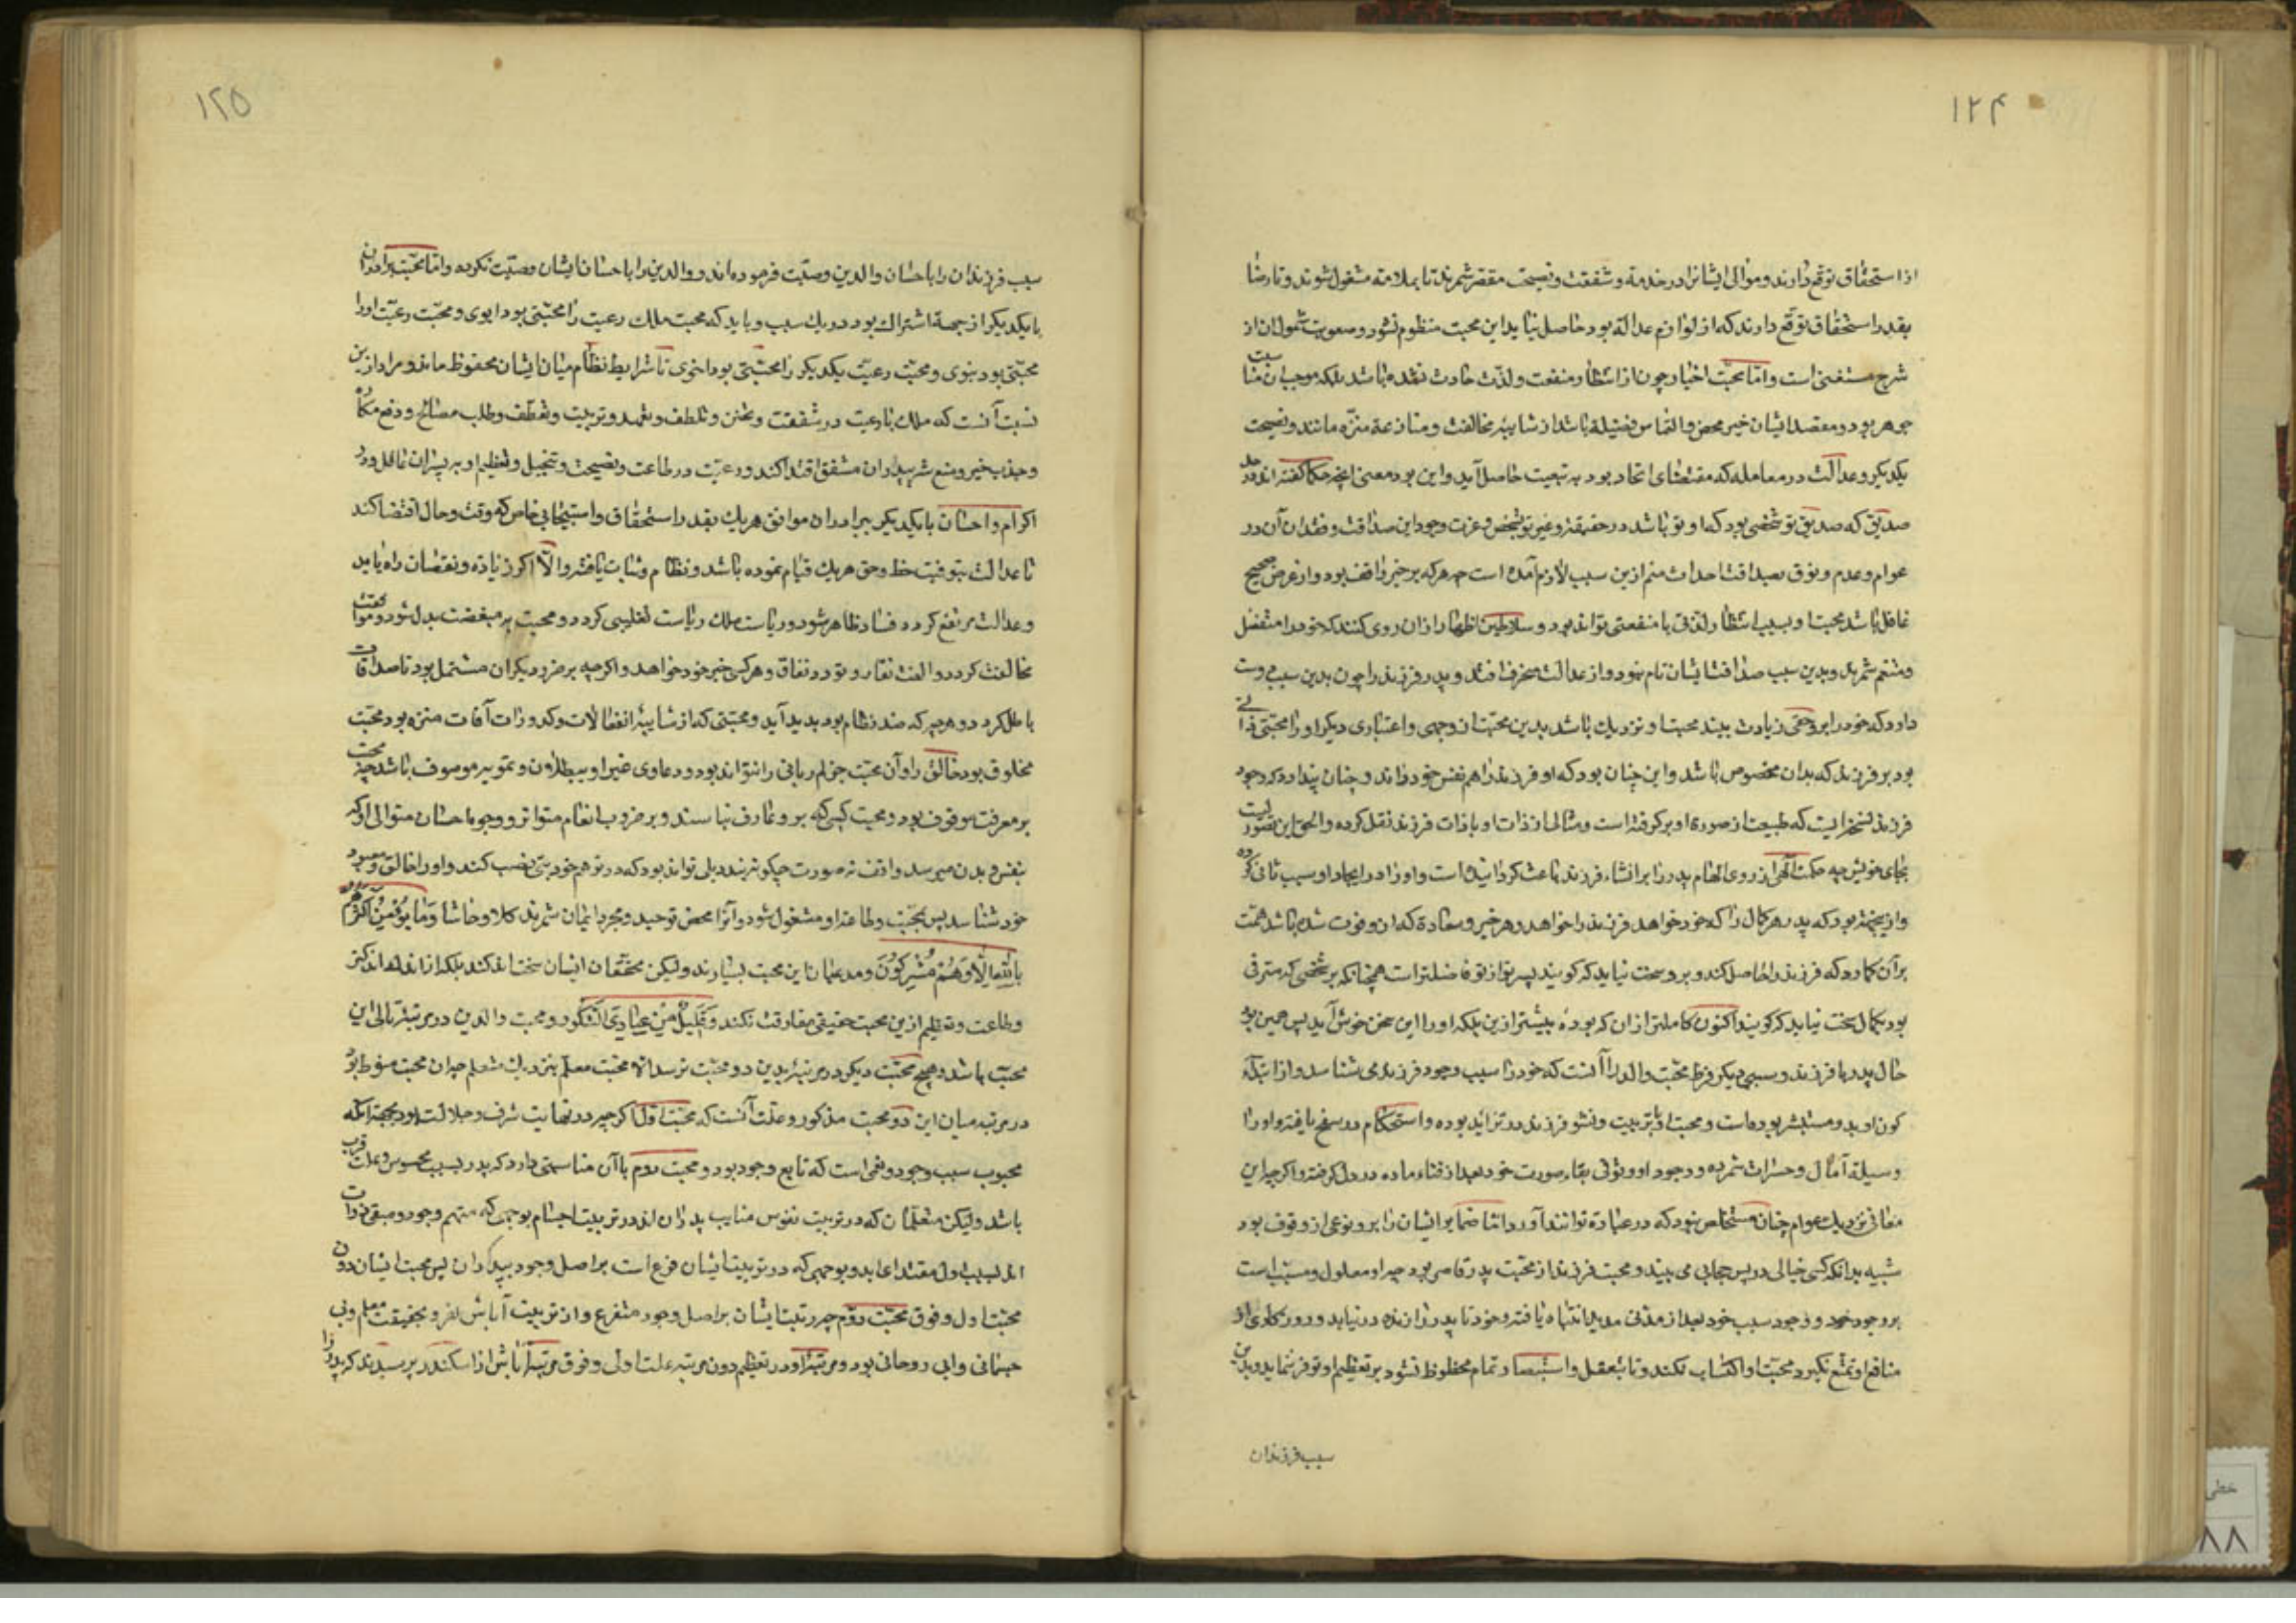 ۱۲۴
از استحقاق توقع دارند و موالی ایشانرا در خدمة و شفقت و نصیحت مقصر شمرند تا بملامة مشغول شوند و تا رضا
بقدر استحقاق توقع دارند که از لوازم عدالة بود حاصل نیاید این محبت منظوم نشود و صعوبت شمول آن از
شرح مستغنی است و اما محبت اخیار چون از انتظار منفعت و لذت حادث نشده باشد بلکه موجب آن مناسبت
جوهر بود و مقصد ایشان خیر محض و التماس فضیلة باشد از شایبه مخالفت و منازعة منزه مانند و نصیحت
یکدیکر و عدالت در معامله که مقتضای اتحاد بود به تبعیت حاصل آید و این بود معنی آنچه حکما کفته اند در حد
صدیق که صدیق تو شخصی بود که او تو باشد در حقیقة و غیر تو بشخص و عزت وجود این صداقت و فقدان آن در
عوام و عدم وثوق بصداقت احداث هم ازین سبب لازم آمده است چه هر که بر خیر واقف نبود و از غرض صحیح
غافل باشد محبت او بسبب انتظار لذتی یا منفعتی تواند بود و سلاطین اظهار از ان روی کنند که خود را متفضل
و منعم شمرند و بدین سبب صداقت ایشان تام نبود و از عدالت منحرف افتد و پدر فرزند را چون بدین سبب دوست
دارد که خود را برو حقی زیادت بیند محبت او نزدیك باشد بدین محبت از وجهی و اعتباری دیکر او را محبتی ذاتی
بود بر فرزند که بدان مخصوص باشد و این چنان بود که او فرزند را هم نفس خود داند و چنان پندارد که وجود
فرزند نسخه ایست که طبیعت از صورة او بر کرفته است و مثالی از ذات او با ذات فرزند نقل کرده و الحق این تصوریست
بجای خویش چه حکمت الهی از روی الهام پدر را بر انشاء فرزند باعث کردانیده است و او را در ایجاد او سبب ثانی کرده
و از ینجهة بود که پدر هر کمال را که خود خواهد فرزند را خواهد و هر خیر و سعادة که از و فوت شده باشد همت
بر آن کمارد که فرزند را حاصل کند و برو سخت نیاید که کویند پسر تو از تو فاضلتر است همچنانکه بر شخصی که مترقی
بود بکمال سخت نیاید که کویند اکنون کاملتر از ان که بودهٔ پیشتر ازین بلکه او را این سخن خوش آید پس همین بود
حال پدر با فرزند و سببی دیکر فرط محبت والد را آنست که خود را سبب وجود فرزند می شناسد و از ابتداء
کون او بدو مستبشر بوده است و محبت او بتربیت و نشو فرزند در تزاید بوده و استحکام و رسوخ یافته و او را
وسیلة آمال و مسرات شمرده و وجود او وثوقی بقاء صورت خود بعد از فناء ماده در دل کرفته و اکرچه این
معانی نزدیك عوام چنان مستخلص نبود که در عبارة توانند آورد اما ضمایر ایشان را برو نوعی از وقوف بود
شبیه بدانکه کسی خیالی در پس حجابی می بیند و محبت فرزند از محبت پدر قاصر بود چه او معلول و مسبب است
بر وجود خود و وجود سبب خود بعد از مدتی مدید انتباه یافته و خود تا پدر را زنده در نیابد و روزکاری از
منافع او تمتع نکیرد محبت او اکتساب نکند و تا بتعقل و استبصار تمام محظوظ نشود بر تعظیم او توفر ننماید و بدین
سبب فرزندان
۱۲۵
سبب فرزندان را باحسان والدین وصیت فرموده اند و والدین را باحسان ایشان وصیت نکرده و اما محبت برادران
با یکدیکر از جهة اشتراك بود در یك سبب و باید که محبت ملك رعیت را محبتی بود ابوی و محبت رعیت او را
محبتی بود بنوی و محبت رعیت یکدیکر را محبتی بود اخوی تا شرایط نظام میان ایشان محفوظ ماند و مراد ازین
نسبت آنست که ملك با رعیت در شفقت و تحنن و تلطف و تعهد و تربیت و تعطف و طلب مصالح و دفع مکاره
و جذب خیر و منع شر بپدران مشفق اقتدا کند و رعیت در طاعت و نصیحت و تبجیل و تعظیم او به پسران عاقل و در
اکرام و احسان با یکدیکر ببرادران موافق هر یك بقدر استحقاق و استیجابی خاص که وقت و حال اقتضا کند
تا عدالت بتوفیت حظ و حق هر یك قیام نموده باشد و نظام و ثبات یافته و الا اکر زیادة و نقصان راه یابد
و عدالت مرتفع کردد فساد ظاهر شود و ریاست ملك ریاست تغلیبی کردد و محبت به مبغضت بدل شود و موافقت
مخالفت کردد و الفت نفار و تودد نفاق و هر کس خیر خود خواهد و اکرچه بر ضرر دیکران مشتمل بود تا صداقات
باطل کردد و هرج که ضد نظام بود پدید آید و محبتی که از شایبه انفعالات و کدورات آفات منزه بود محبت
مخلوق بود خالق را و آن محبت جز عالم ربانی را نتواند بود و دعاوی غیر او ببطلان و تمویه موصوف باشد چه محبت
بر معرفت موقوف بود و محبت کسی که برو عارف نباشد و بر ضروب انعام متواتر و وجوه احسان متوالی او که
بنفس و بدن میرسد واقف نه صورت چکونه بندد بلی تواند بود که در توهم خود بتی نصب کند و او را خالق و معبود
خود شناسد پس بمحبت و طاعة او مشغول شود و آنرا محض توحید و مجرد ایمان شمرند کلا و حاشا وَمَا يُؤْمِنُ أَكْثَرُهُمْ
بِاللَّهِ إِلَّا وَهُمْ مُشْرِكُونَ و مدعیان این محبت بسیارند ولیکن محققان ایشان سخت اندکند بلکه از اندك اندکتر
و طاعت و تعظیم ازین محبت حقیقی مفارقت نکند وَقَلِيلٌ مِنْ عِبَادِيَ الشَّكُورُ و محبت والدین در مرتبة تالی این
محبت باشد و هیچ محبت دیکر در مرتبه بدین دو محبت نرسد الا محبت معلم بنزدیك متعلم چه آن محبت متوسط بود
در مرتبه میان این دو محبت مذکور و علت آنست که محبت اول اکرچه در نهایت شرف و جلالت بود بجهة آنکه
محبوب سبب وجود و نعمی است که تابع وجود بود و محبت دوم با آن مناسبتی دارد که پدر سبب محسوس و علت قریب
باشد ولیکن معلمان که در تربیت نفوس بمثابت پدران اند در تربیت اجسام بوجهی که متمم وجود و مبقی ذوات
اند بسبب اول مقتدا اند و بوجهی که در تربیت ایشان فرع است بر اصل وجود بپدران پس محبت ایشان دون
محبت اول و فوق محبت دوم چه تربیت ایشان بر اصل وجود متفرع و از تربیت آبا شریفتر و بحقیقت معلم ربی
جسمانی و ابی روحانی بود و مرتبة او در تعظیم دون مرتبه علت اولی و فوق مرتبه آباش از اسکندر پرسیدند که پدر را